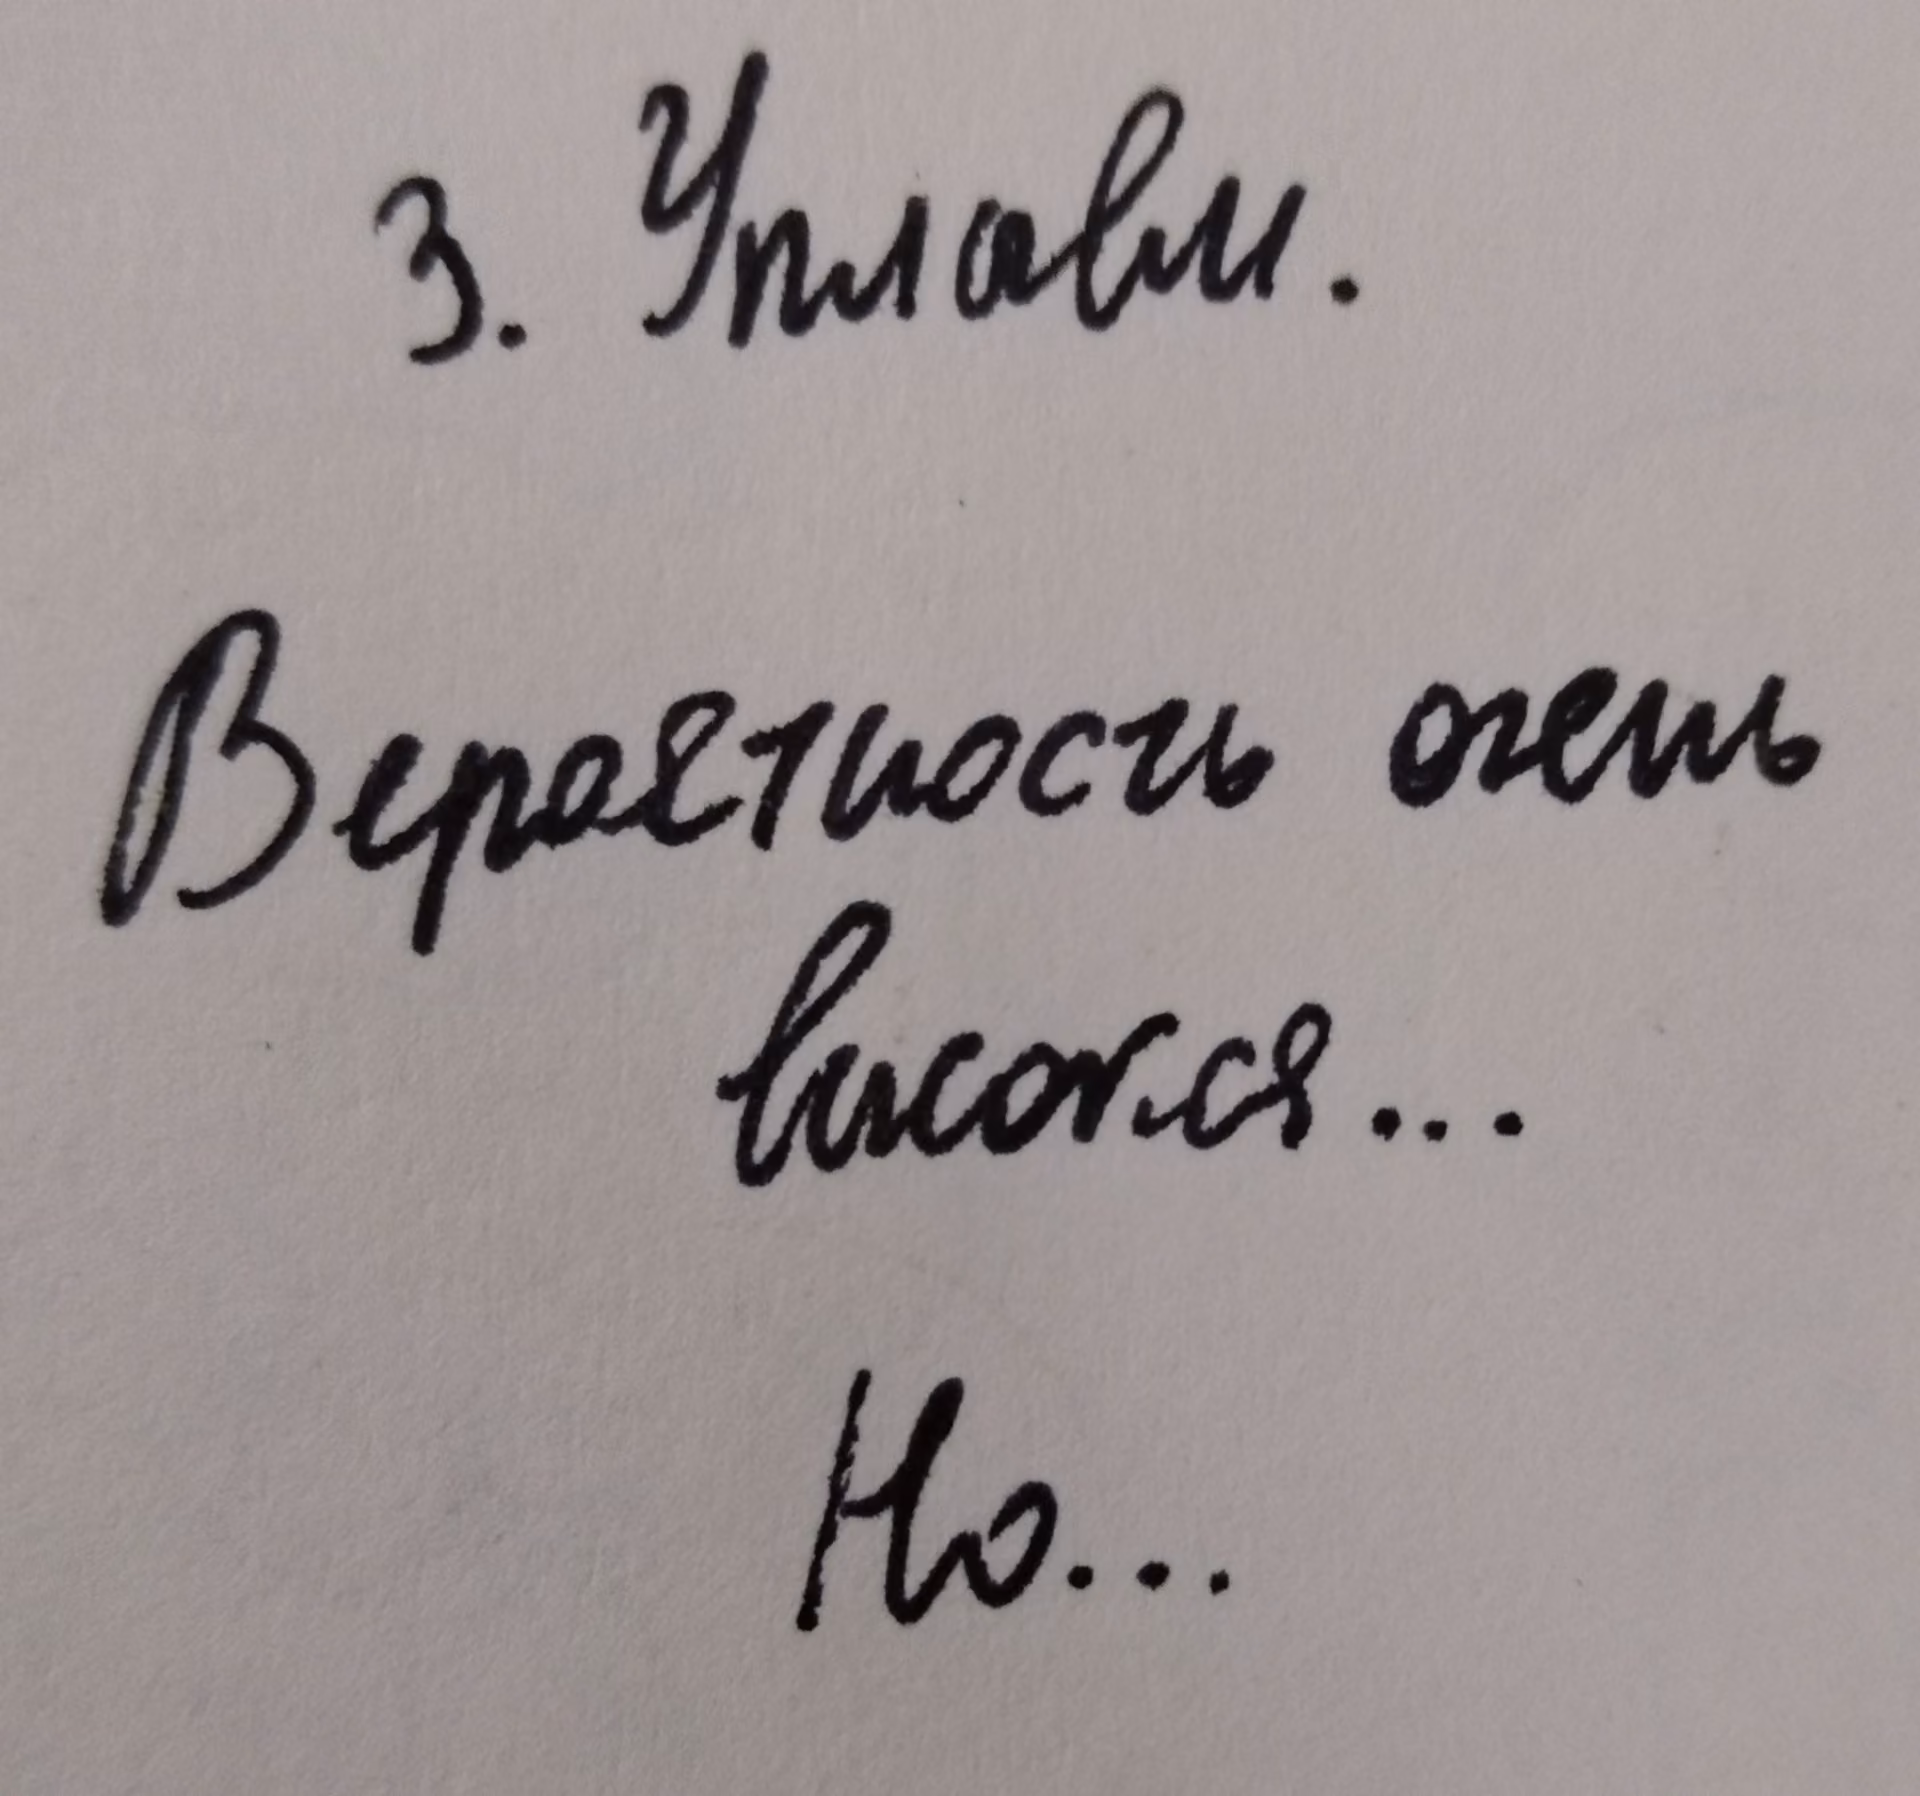 3. Уплави.
Вероятность очень
високая...
Но...